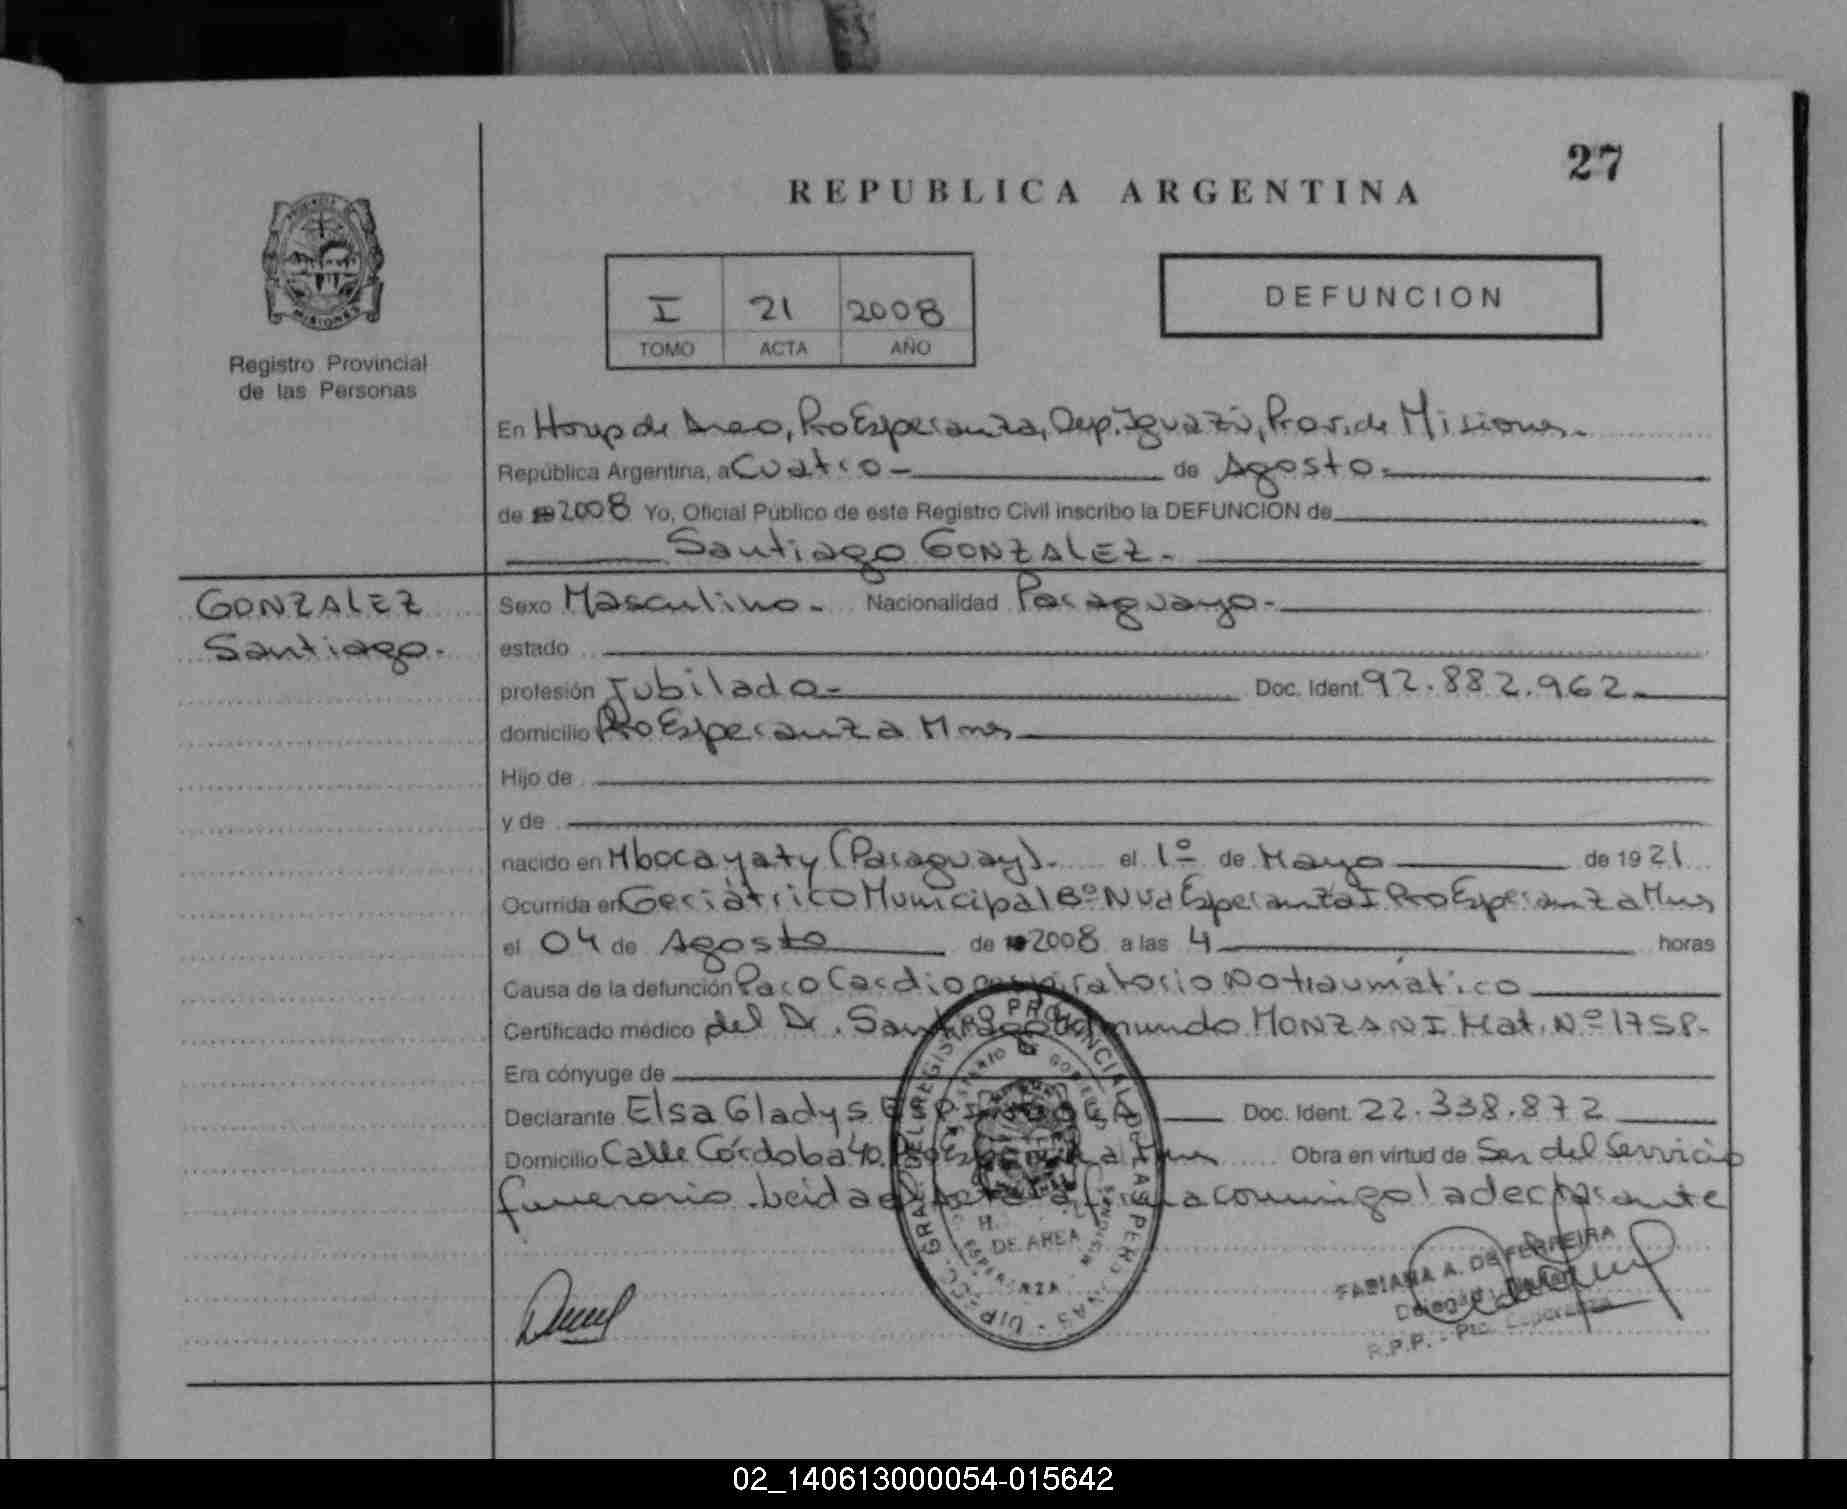 27
REPUBLICA ARGENTINA
MISIONES
Registro Provincial
de las Personas
I 21 2008
TOMO ACTA AÑO
DEFUNCION
En Hosp de Area, Pto Esperanza, Dep. Iguazú, Prov. de Misiones.
República Argentina, a Cuatro - de Agosto.
de 2008 Yo, Oficial Público de este Registro Civil inscribo la DEFUNCION de
Santiago GONZALEZ.
GONZALEZ
Santiago.
Sexo Masculino. Nacionalidad Paraguayo.
estado
profesión Jubilado - Doc. Ident. 92.882.962
domicilio Pto Esperanza Mnes
Hijo de
y de
nacido en Mbocayaty (Paraguay). el 1º de Mayo de 1921
Ocurrida en Geriátrico Municipal Bº Nva Esperanza I Pto Esperanza Mnes
el 04 de Agosto de 2008 a las 4 horas
Causa de la defunción Paro Cardiorespiratorio No traumático
Certificado médico del Dr. Santiago Edmundo MONZANI Mat. Nº
Era cónyuge de
Declarante Elsa Gladys Doc. Ident. 22.338.872
Domicilio Calle Córdoba 40. Pto Esperanza Mnes Obra en virtud de Ser del Servicio
funerario. Leida el Acta la firma conmigo la declarante
DIRECC. GRAL. DEL REGISTRO PROVINCIAL DE LAS PERSONAS
DE AREA
ESPERANZA - MISIONES
FABIANA A. DE FERREIRA
R.P.P. - Pto. Esperanza
02_140613000054-015642